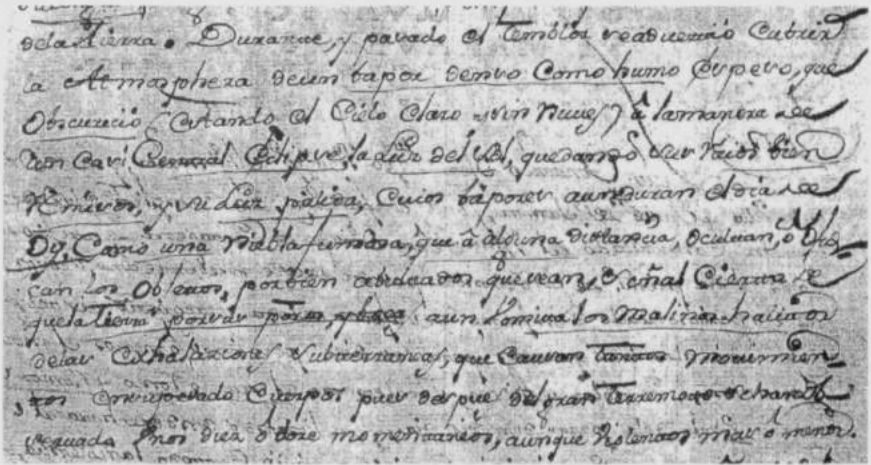 dela tierra. Durante, y pasado el temblor se advirtió Cubrir
la Atmosphera de un bapor denso Como humo Espeso, que
Obscureció (estando el Cielo Claro y sin Nuves) â la manera de
un Casi General Eclipse, la Luz del Sol, quedando sus raios bien
Remisos, y su Luz palida, Cuios bapores aun duran el dia de
Oy, Como una Niebla fumosa, que â alguna distancia, ocultan, o
can los Objetos, por bien abultados que sean, Señal Cierta de
que la tierra por sus poros, y aun Vomita los Malinos halitos
delas Exhalaciones Subterraneas, que Causan tantos movimien-
tos en su pesado Cuerpo: pues despues del gran terremoto se han
vernado unos diez o doze momentaneos, aunque violentos mas o menos.